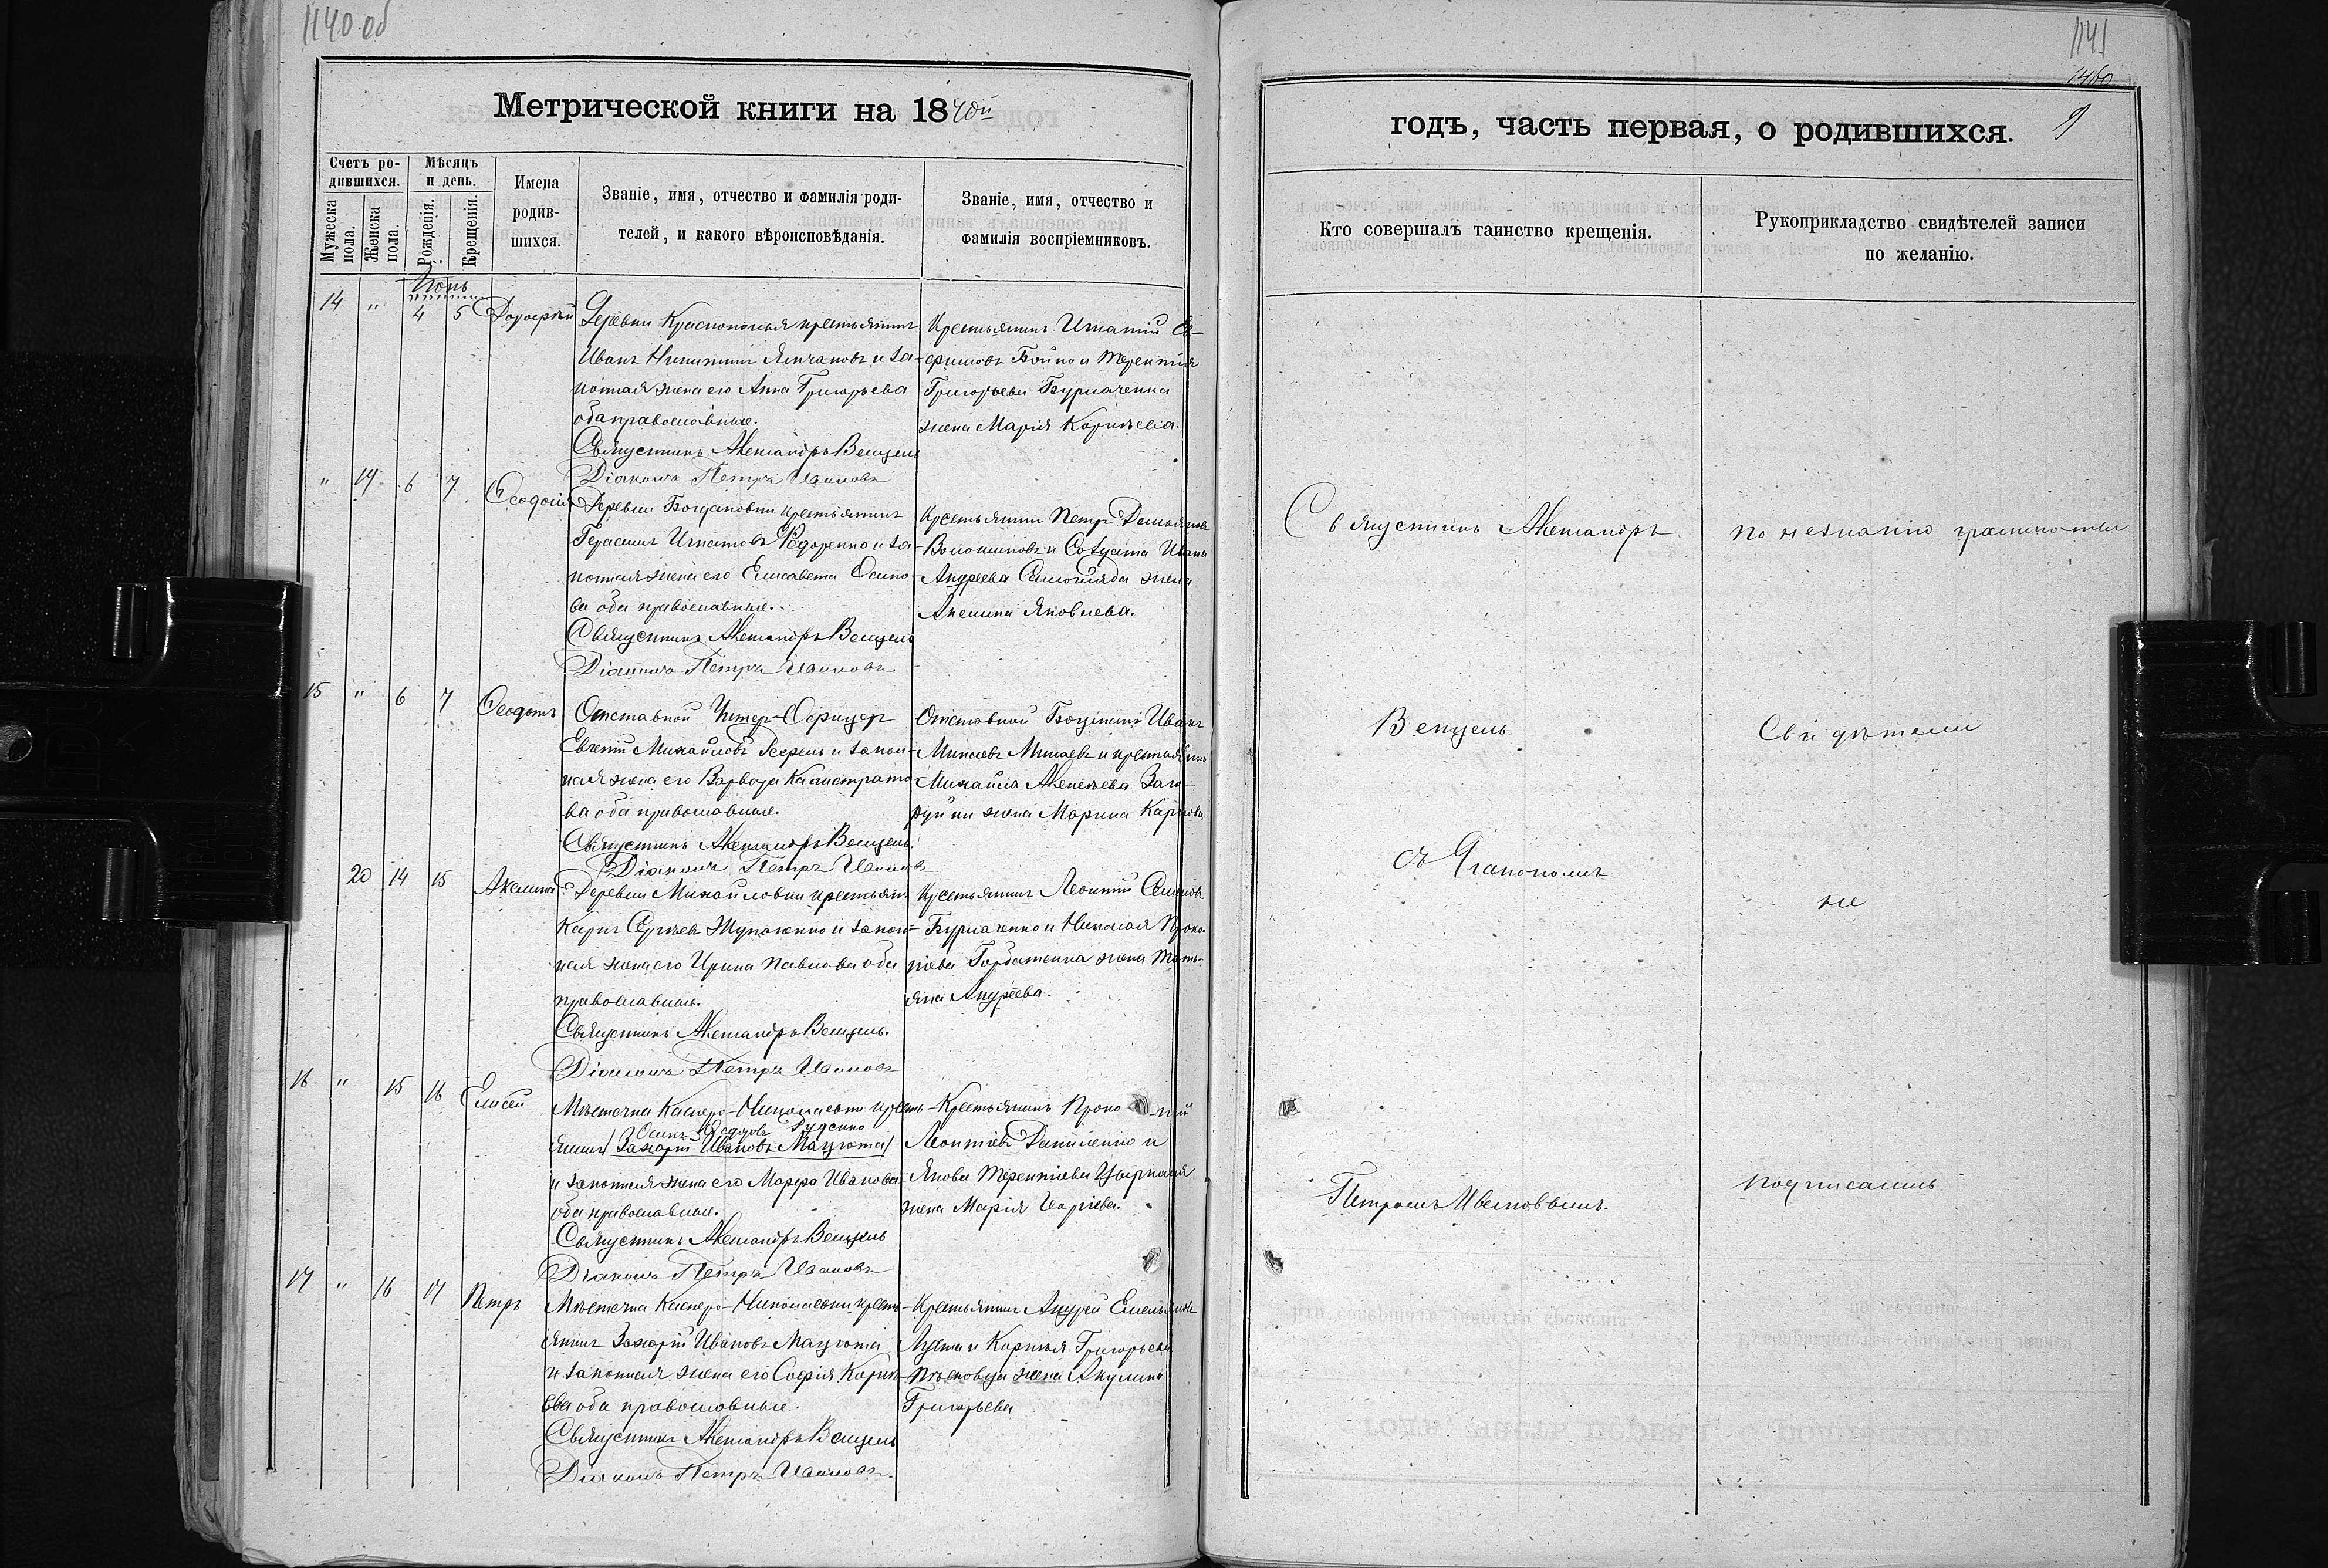 1140 об
Метрической книги на 1870й
Счетъ родившихся.
Мѣсяцъ и день.
Мужеска пола.
Женска пола.
Рожденія.
Крещенія.
Имена родившихся.
Званіе, имя, отчество и фамилія родителей, и какого вѣроисповѣданія.
Званіе, имя, отчество и фамилія воспріемниковъ.
14 " 4 5 Дорофей
Деревни Краснополья крестьянинъ
Иванъ Никитинъ и за-
конная жена его Анна Григорьева
оба православные.
Священникъ Александръ Венцель
Діаконъ Петръ Ивановъ
Крестьянинъ Игнатій Е-
фимовъ Бойко и Терентія
Григорьева Бурлаченка
жена Марія Корнѣева.
" 19 6 7 Ѳеодосія
Деревни Богдановки крестьянинъ
Герасимъ Игнатовъ Ѳедоренко и за-
конная жена его Елисавета Осипо-
ва оба православные.
Священникъ Александръ Венцель
Діаконъ Петръ Ивановъ
Крестьянинъ Петръ Демьяновъ
Волошиновъ и Солдата Ивана
Андреева жена
Акилина Яковлева.
15 " 6 7 Ѳеодотъ
Отставной Унтеръ-Офицеръ
Евгеній Михайловъ и закон-
ная жена его Варвара Калистрато-
ва оба православные.
Священникъ Александръ Венцель.
Діаконъ Петръ Ивановъ
Отставной Иванъ
и крестьянина
Михаила Алексѣева Заго-
руйки жена Марина Карпова
20 14 15 Акилина
Деревни Михайловки крестьян.
Карпъ Сергѣевъ и закон-
ная жена его Ирина Павлова оба
православные.
Священникъ Александръ Венцель.
Діаконъ Петръ Ивановъ
Крестьянинъ Леонтій Семеновъ
Бурлаченко и Николая Проко-
піева Горбатенка жена Тать-
яна Андреева.
16 " 15 16 Елисей
Мѣстечка Касперо-Николаевки кресть-
Осипъ Ѳедоровъ Руденко
янинъ (Захарій Ивановъ Мацюта)
и законная жена его Марфа Иванова
оба православные.
Священникъ Александръ Венцель
Діаконъ Петръ Ивановъ
Крестьянинъ Проко-пій
Леонтіевъ Даниленко и
Якова Терентіева
жена Марія Георгіева.
17 " 16 17 Петръ
Мѣстечка Касперо-Николаевки кресть-
янинъ Захарій Ивановъ Мацюта
и законная жена его Софія Корнѣ-
ева оба православные.
Священникъ Александръ Венцель
Діаконъ Петръ Ивановъ.
Крестьянинъ Андрей Емельяновъ
и Корнѣя Григорьева
жена Акулина
Григорьева
1141
9
годъ, часть первая, о родившихся.
Кто совершалъ таинство крещенія.
Рукоприкладство свидѣтелей записи по желанію.
Священникъ Александръ
Венцель
съ Діакономъ
Петромъ Ивановымъ.
по незнанію грамоты
Свидѣтели
не
подписались